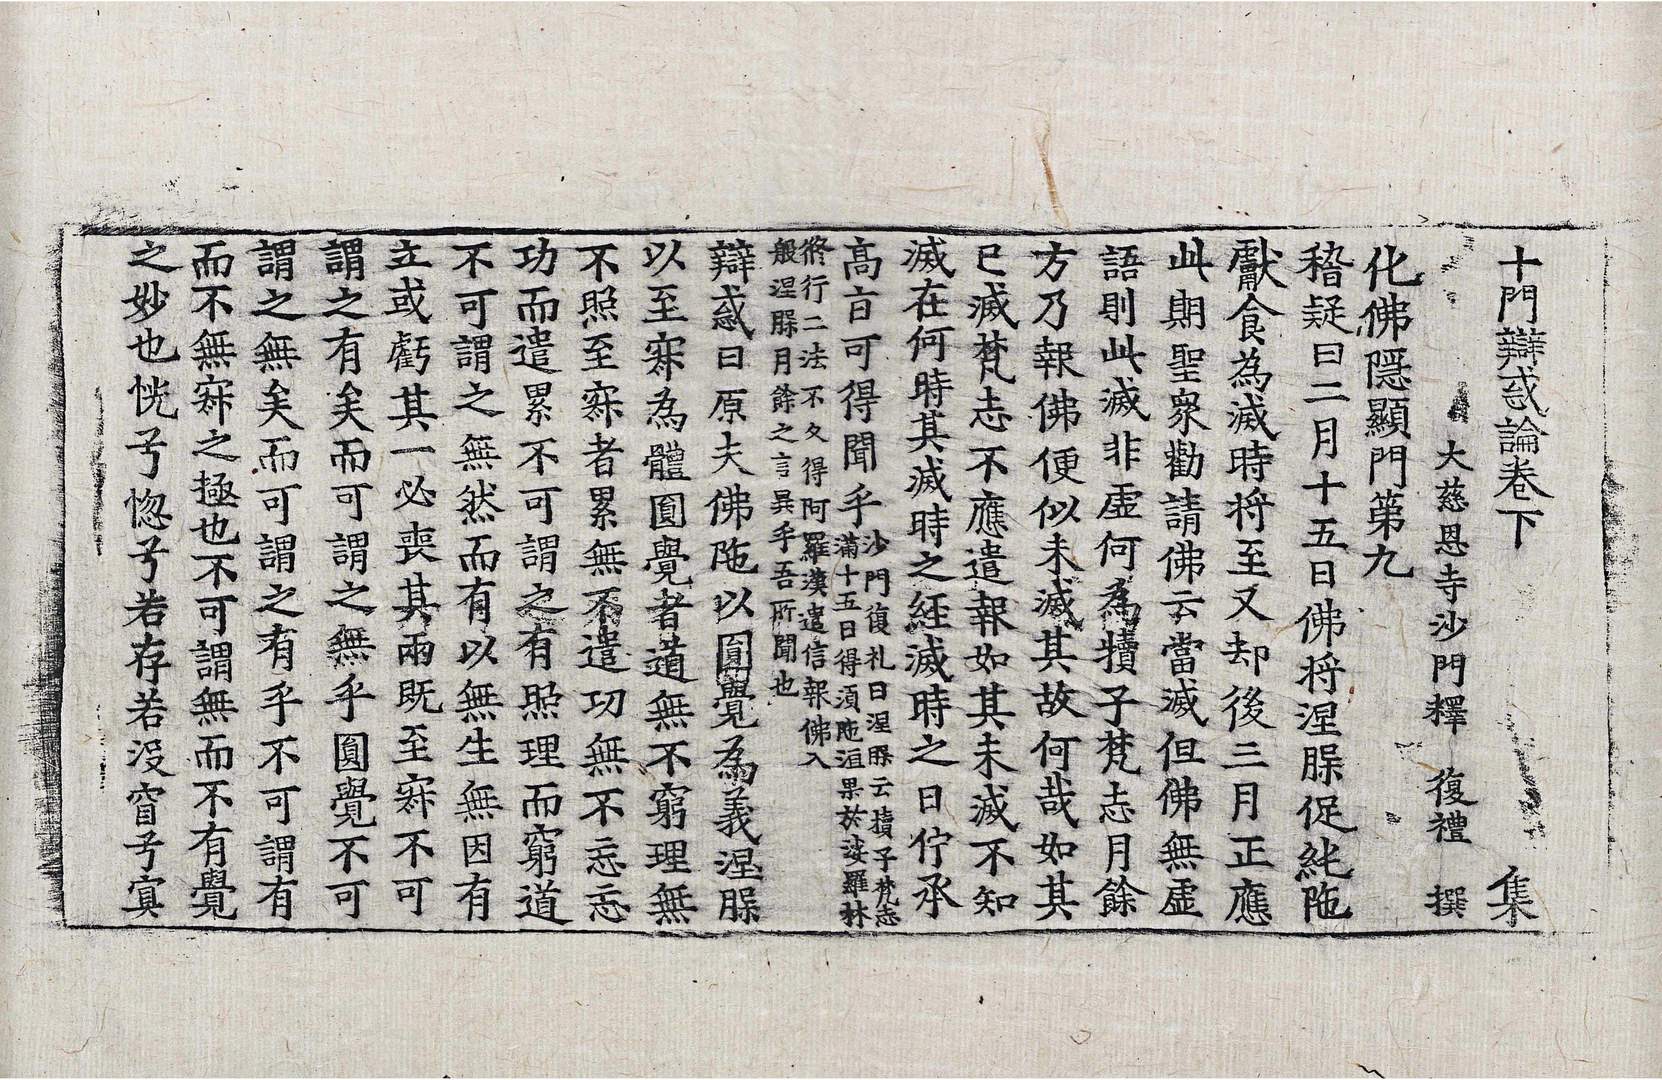 十門辯惑論卷下 集
大慈恩寺沙門釋 復禮 撰
化佛隱顯門第九
稽疑曰二月十五日佛將涅槃促純陁
獻食為滅時將至又却後三月正應
此期聖衆勸請佛云當滅但佛無虛
語則此滅非虛何為犢子梵志月餘
方乃報佛便似未滅其故何哉如其
已滅梵志不應遣報如其未滅不知
滅在何時其滅時之經滅時之日佇承
高旨可得聞乎
沙門復礼曰涅槃云犢子梵志
滿十五日得須陁洹果於娑羅林
修行二法不久得阿羅漢遣信報佛入
般涅槃月餘之言異乎吾所聞也
辯惑曰原夫佛陁以圓覺為義涅槃
以至寂為體圓覺者道無不窮理無
不照至寂者累無不遣功無不忘忘
功而遣累不可謂之有照理而窮道
不可謂之無然而有以無生無因有
立或虧其一必喪其兩既至寂不可
謂之有矣而可謂之無乎圓覺不可
謂之無矣而可謂之有乎不可謂有
而不無寂之極也不可謂無而不有覺
之妙也恍兮惚兮若存若沒窅兮寘